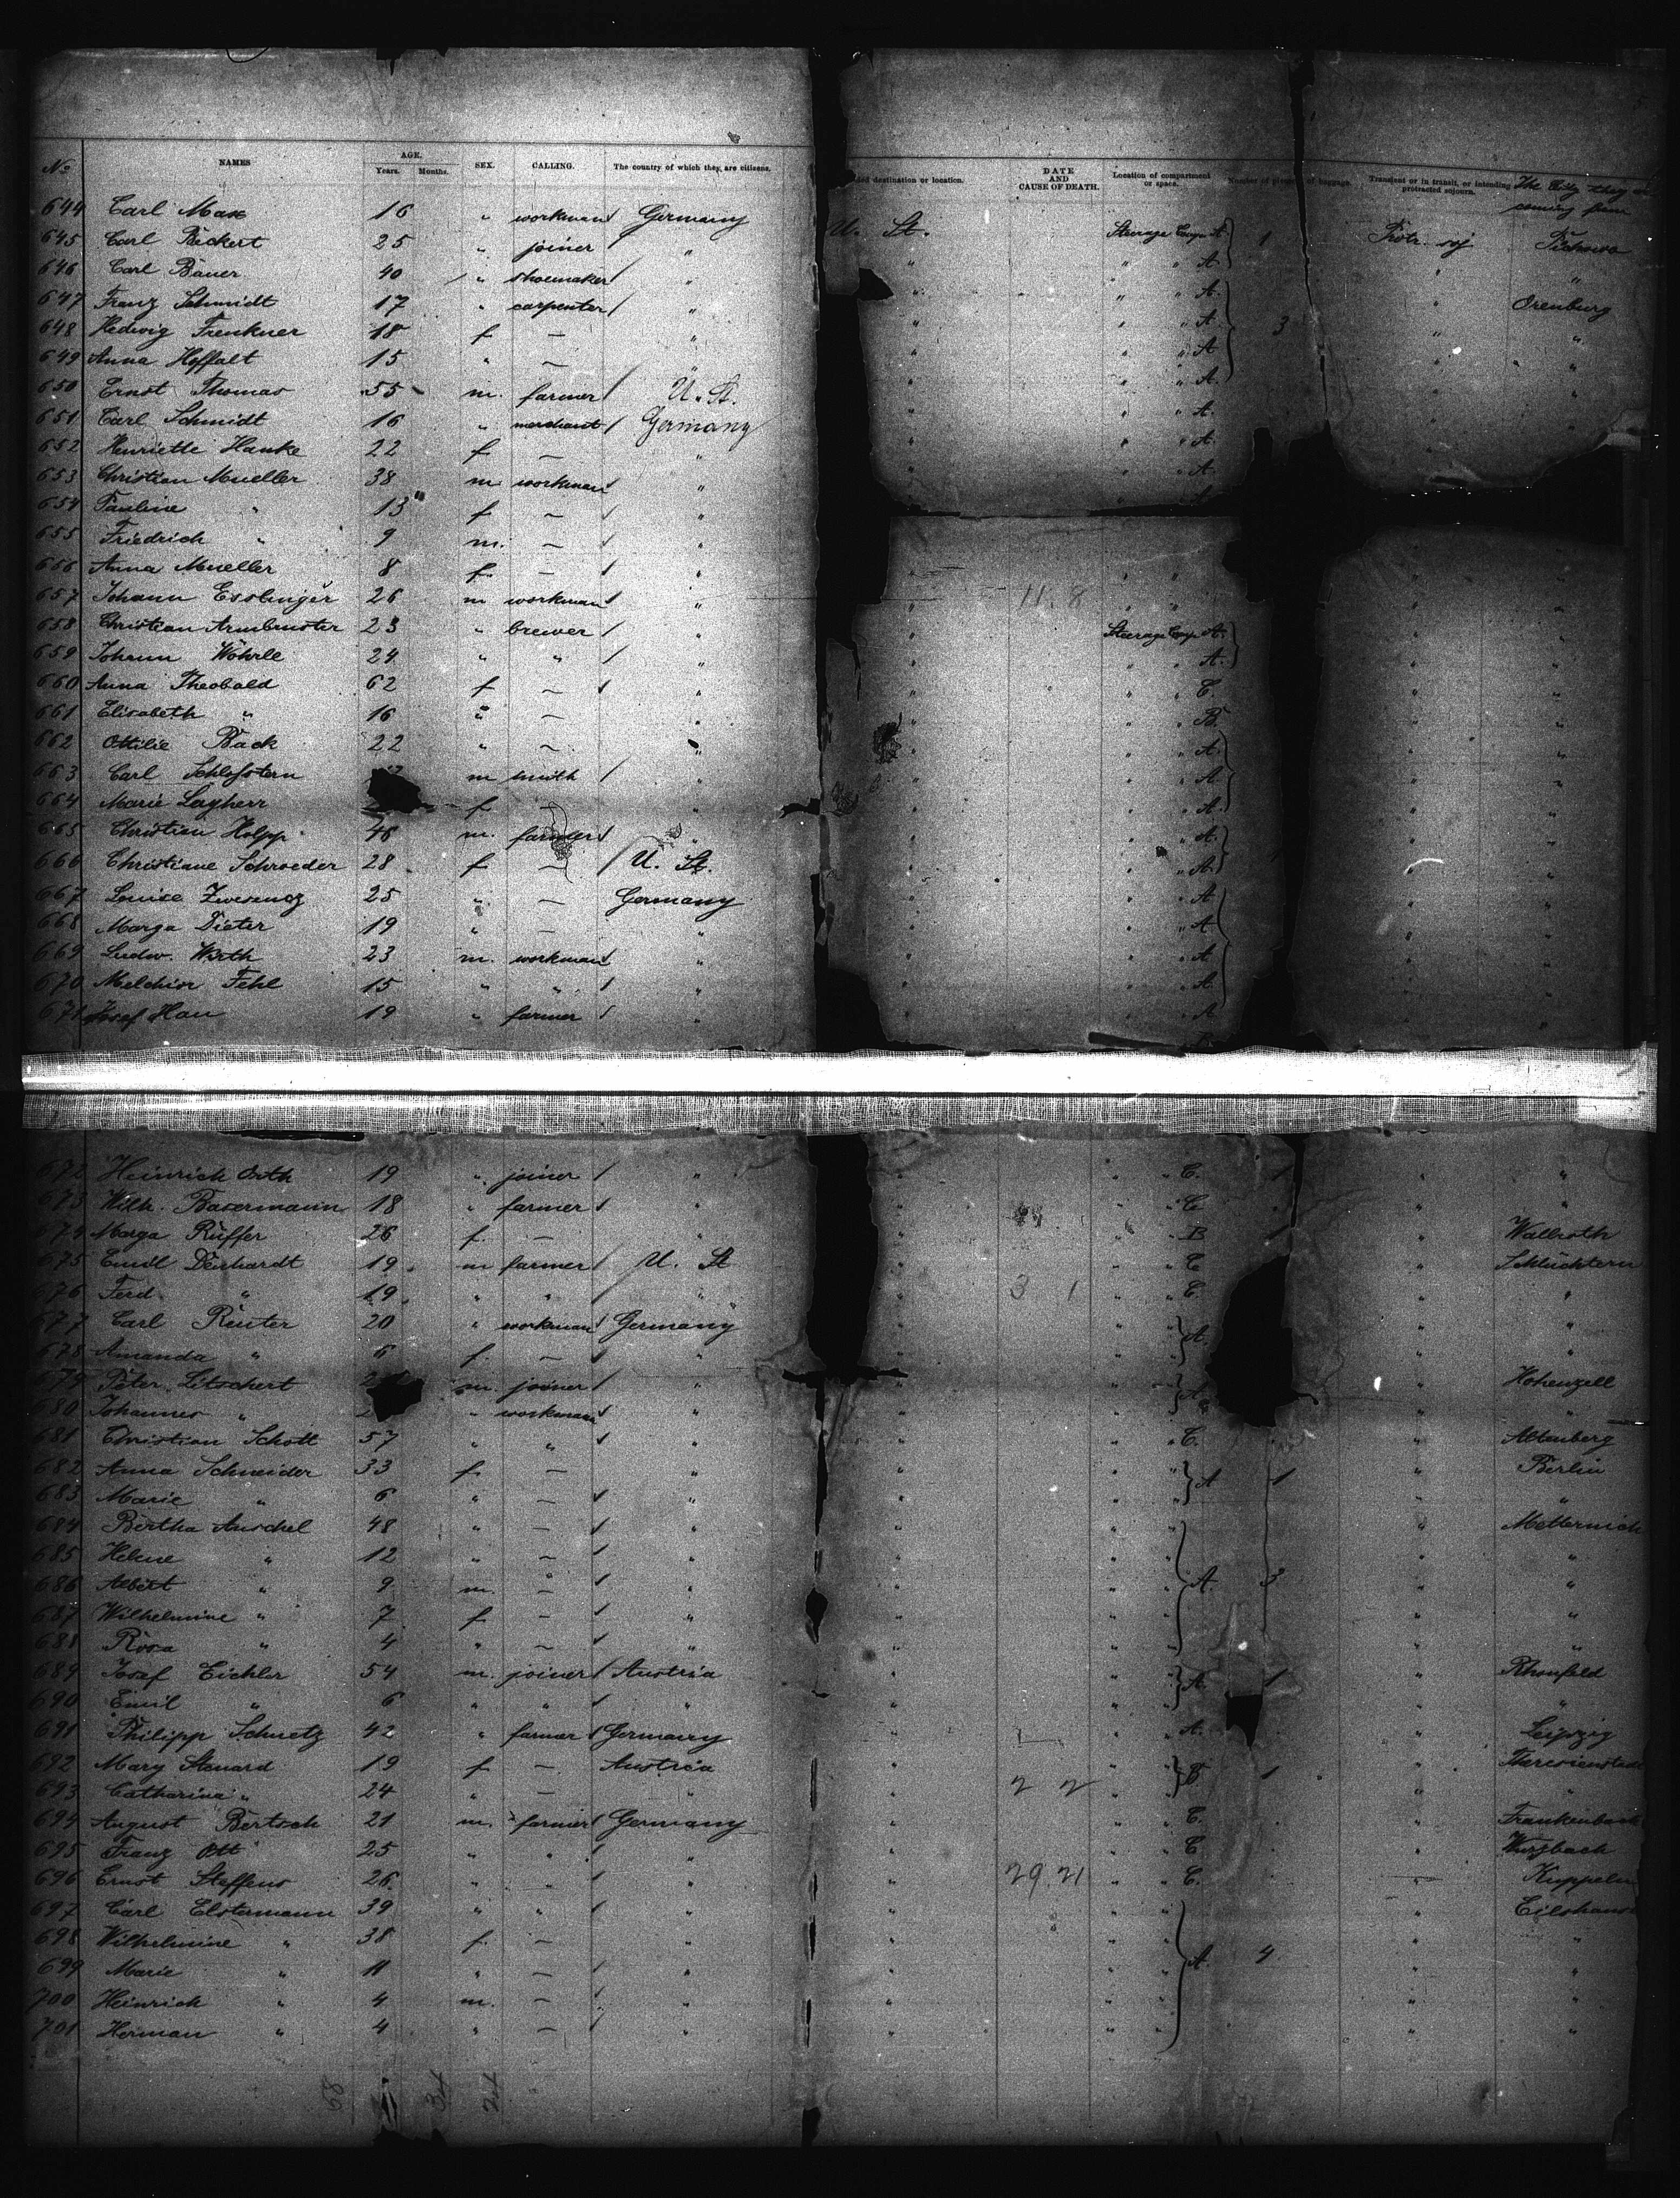 No NAMES AGE. Years. Months. SEX. CALLING. The country of which they are citizens. destination or location. DATE AND CAUSE OF DEATH. Location of compartment or space. Number of pieces of baggage. Transient or in transit, or intending protracted sojourn. The City they are coming from
644 Carl Max 16 " workman Germany U. St. Steerage Comp A. 1 Protr. soj
645 Carl Beckert 25 " joiner " " " " A
646 Carl Bauer 40 " shoemaker " " " " A. "
647 Franz Schmidt 17 " carpenter " " " " A. 3 " Orenburg
648 Hedwig Frenkner 18 f — " " " " A " "
649 Anna Hoffalt 15 " — " " " " A. " "
650 Ernst Thomas 55 m. farmer U. St. " " " A. " "
651 Carl Schmidt 16 " merchant Germany " " " A. " "
652 Henriette Hanke 22 f — " " " " A
653 Christian Mueller 38 m workman "
654 Pauline " 13 f — "
655 Friedrich " 9 m. — "
656 Anna Mueller 8 f — " " " " " "
657 Johann Esslinger 26 m workman " " 11. 8 " " " "
658 Christian Armbruster 23 " brewer " " Steerage Comp A. " "
659 Johann Wöhrle 24 " " " " " " A. " "
660 Anna Theobald 62 f — " " " " C. " "
661 Elisabeth " 16 " — " " " " B. " "
662 Ottilie Back 22 " — " " " " A. " "
663 Carl Schlosstern m smith " " " " A " "
664 Marie Layherr f — " " " " A " "
665 Christian Holpp 46 m. farmer " " " " A. " "
666 Christiane Schroeder 28 f — U. St. " " " A. " "
667 Louise 25 " — Germany " " " A " "
668 Marga Dieter 19 " — " " " " A " "
669 Ludw. Wirth 23 m. workman " " " " A " "
670 Melchior Fehl 15 " " " " " " A " "
671 Josef Hau 19 " farmer " " " " A " "
672 Heinrich Orth 19 " joiner " " " " C. 1 " "
673 Wilh. Basermann 18 " farmer " " " " C. " "
674 Marga Rüffer 26 f. — " " " " B 1 " Wallroth
675 Emil Deirhardt 19 m farmer U. St " " " C " Schlüchtern
676 Ferd. " 19 " " " " 3 1 " " C. " "
677 Carl Reuter 20 " workman Germany " " " A. " "
678 Amanda " 6 f. — " " " " " "
679 Peter Litschert m. joiner " " " " A " Hohenzell
680 Johannes " " workman " " " " " "
681 Christian Schott 57 " " " " " " C. " Altenberg
682 Anna Schneider 33 f. — " " " " A 1 " Berlin
683 Marie " 6 " — " " " " " "
684 Bertha Auschel 48 " — " " " " " Metternich
685 Helene " 12 " — " " " " " "
686 Albert " 9 m. — " " " " A. 3 " "
687 Wilhelmine " 7 f — " " " " " "
688 Rosa " 4 " — " " " " " "
689 Josef Eichler 54 m. joiner Austria " " " A. 1 " Rhonfeld
690 Emil " 6 " " " " " " " "
691 Philipp Schuetz 42 " farmer Germany " " " A. " Leipzig
692 Mary Stenard 19 f — Austria " " " B 1 " Theresienstadt
693 Catharina " 24 " — " " 2 2 " " " "
694 August Bertsch 21 m. farmer Germany " " " C. " Frankenbach
695 Franz Ott 25 " " " " " " C " Wurzbach
696 Ernst Steffens 26 " " " " 29. 21 " " C. " Kuppeln
697 Carl Elstermann 39 " " " " " " " Eilshausen
698 Wilhelmine " 38 f. — " " " " A 4 " "
699 Marie " 11 " — " " " " " "
700 Heinrich " 4 m. — " " " " " "
701 Herman " 4 " — " " " " " "
58 34 24